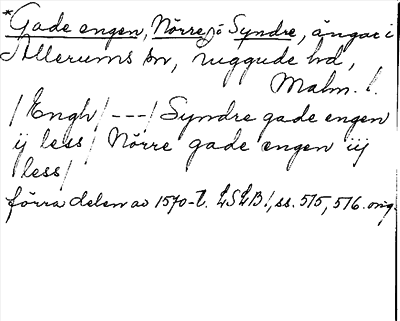 *Gade engen, Nörre, ö Syndre, ängar i
Allerums sn, ruggude hd,
Malm. l.
/Engh/ --- / Syndre gade engen
ij less / Nörre gade engen iij
less/
förra delen av 1570-t. LSLB 1, ss. 515, 516. orig.